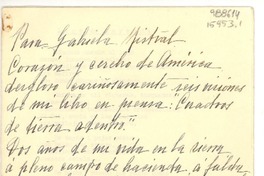 988614
15953.1
Para Gabriela Mistral
Corazón y cerebro de América
desgloso cariñosamente seis visiones
de mi libro en prensa: "Cuadros
de tierra adentro."
Dos años de mi vida en la sierra
a pleno campo de hacienda, a falda